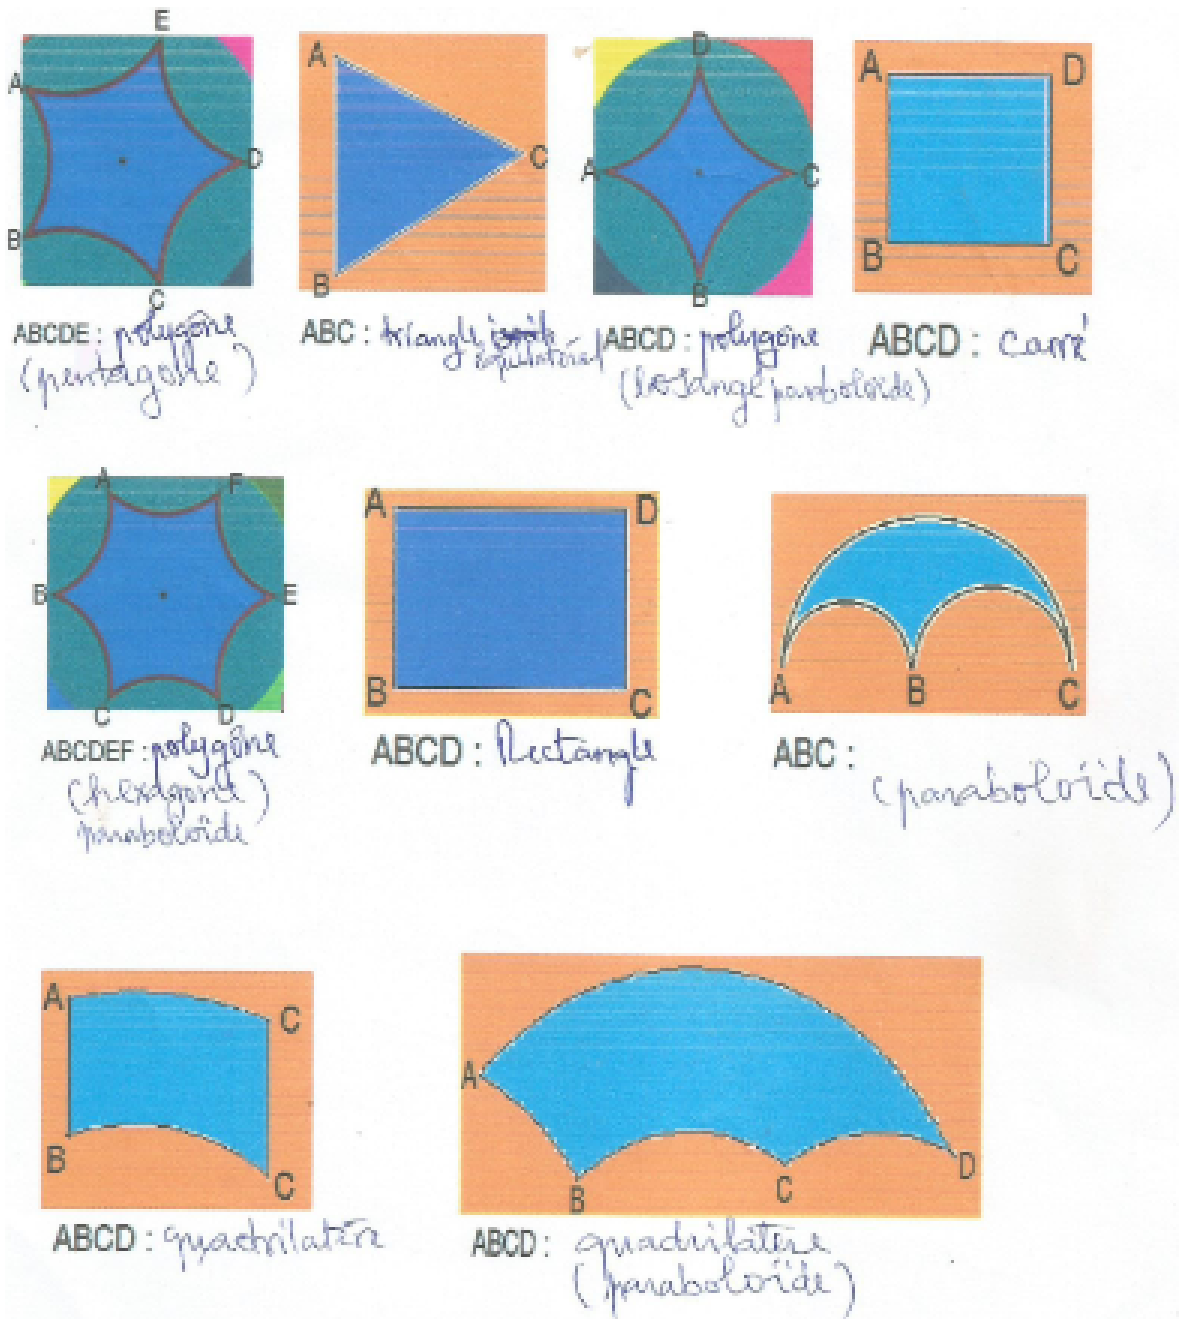 E
A
D
B
C
ABCDE : polygône
(pentagône)
A
C
B
ABC : triangle
équilatéral
D
A
C
B
ABCD : polygône
(losange paraboloïde)
A
D
B
C
ABCD : Carré
A
F
B
E
C
D
ABCDEF : polygône
(hexagone)
paraboloïde
A
D
B
C
ABCD : Rectangle
A
B
C
ABC :
(paraboloïde)
A
C
B
C
ABCD : quadrilatère
A
D
B
C
ABCD : quadrilatère
(paraboloïde)